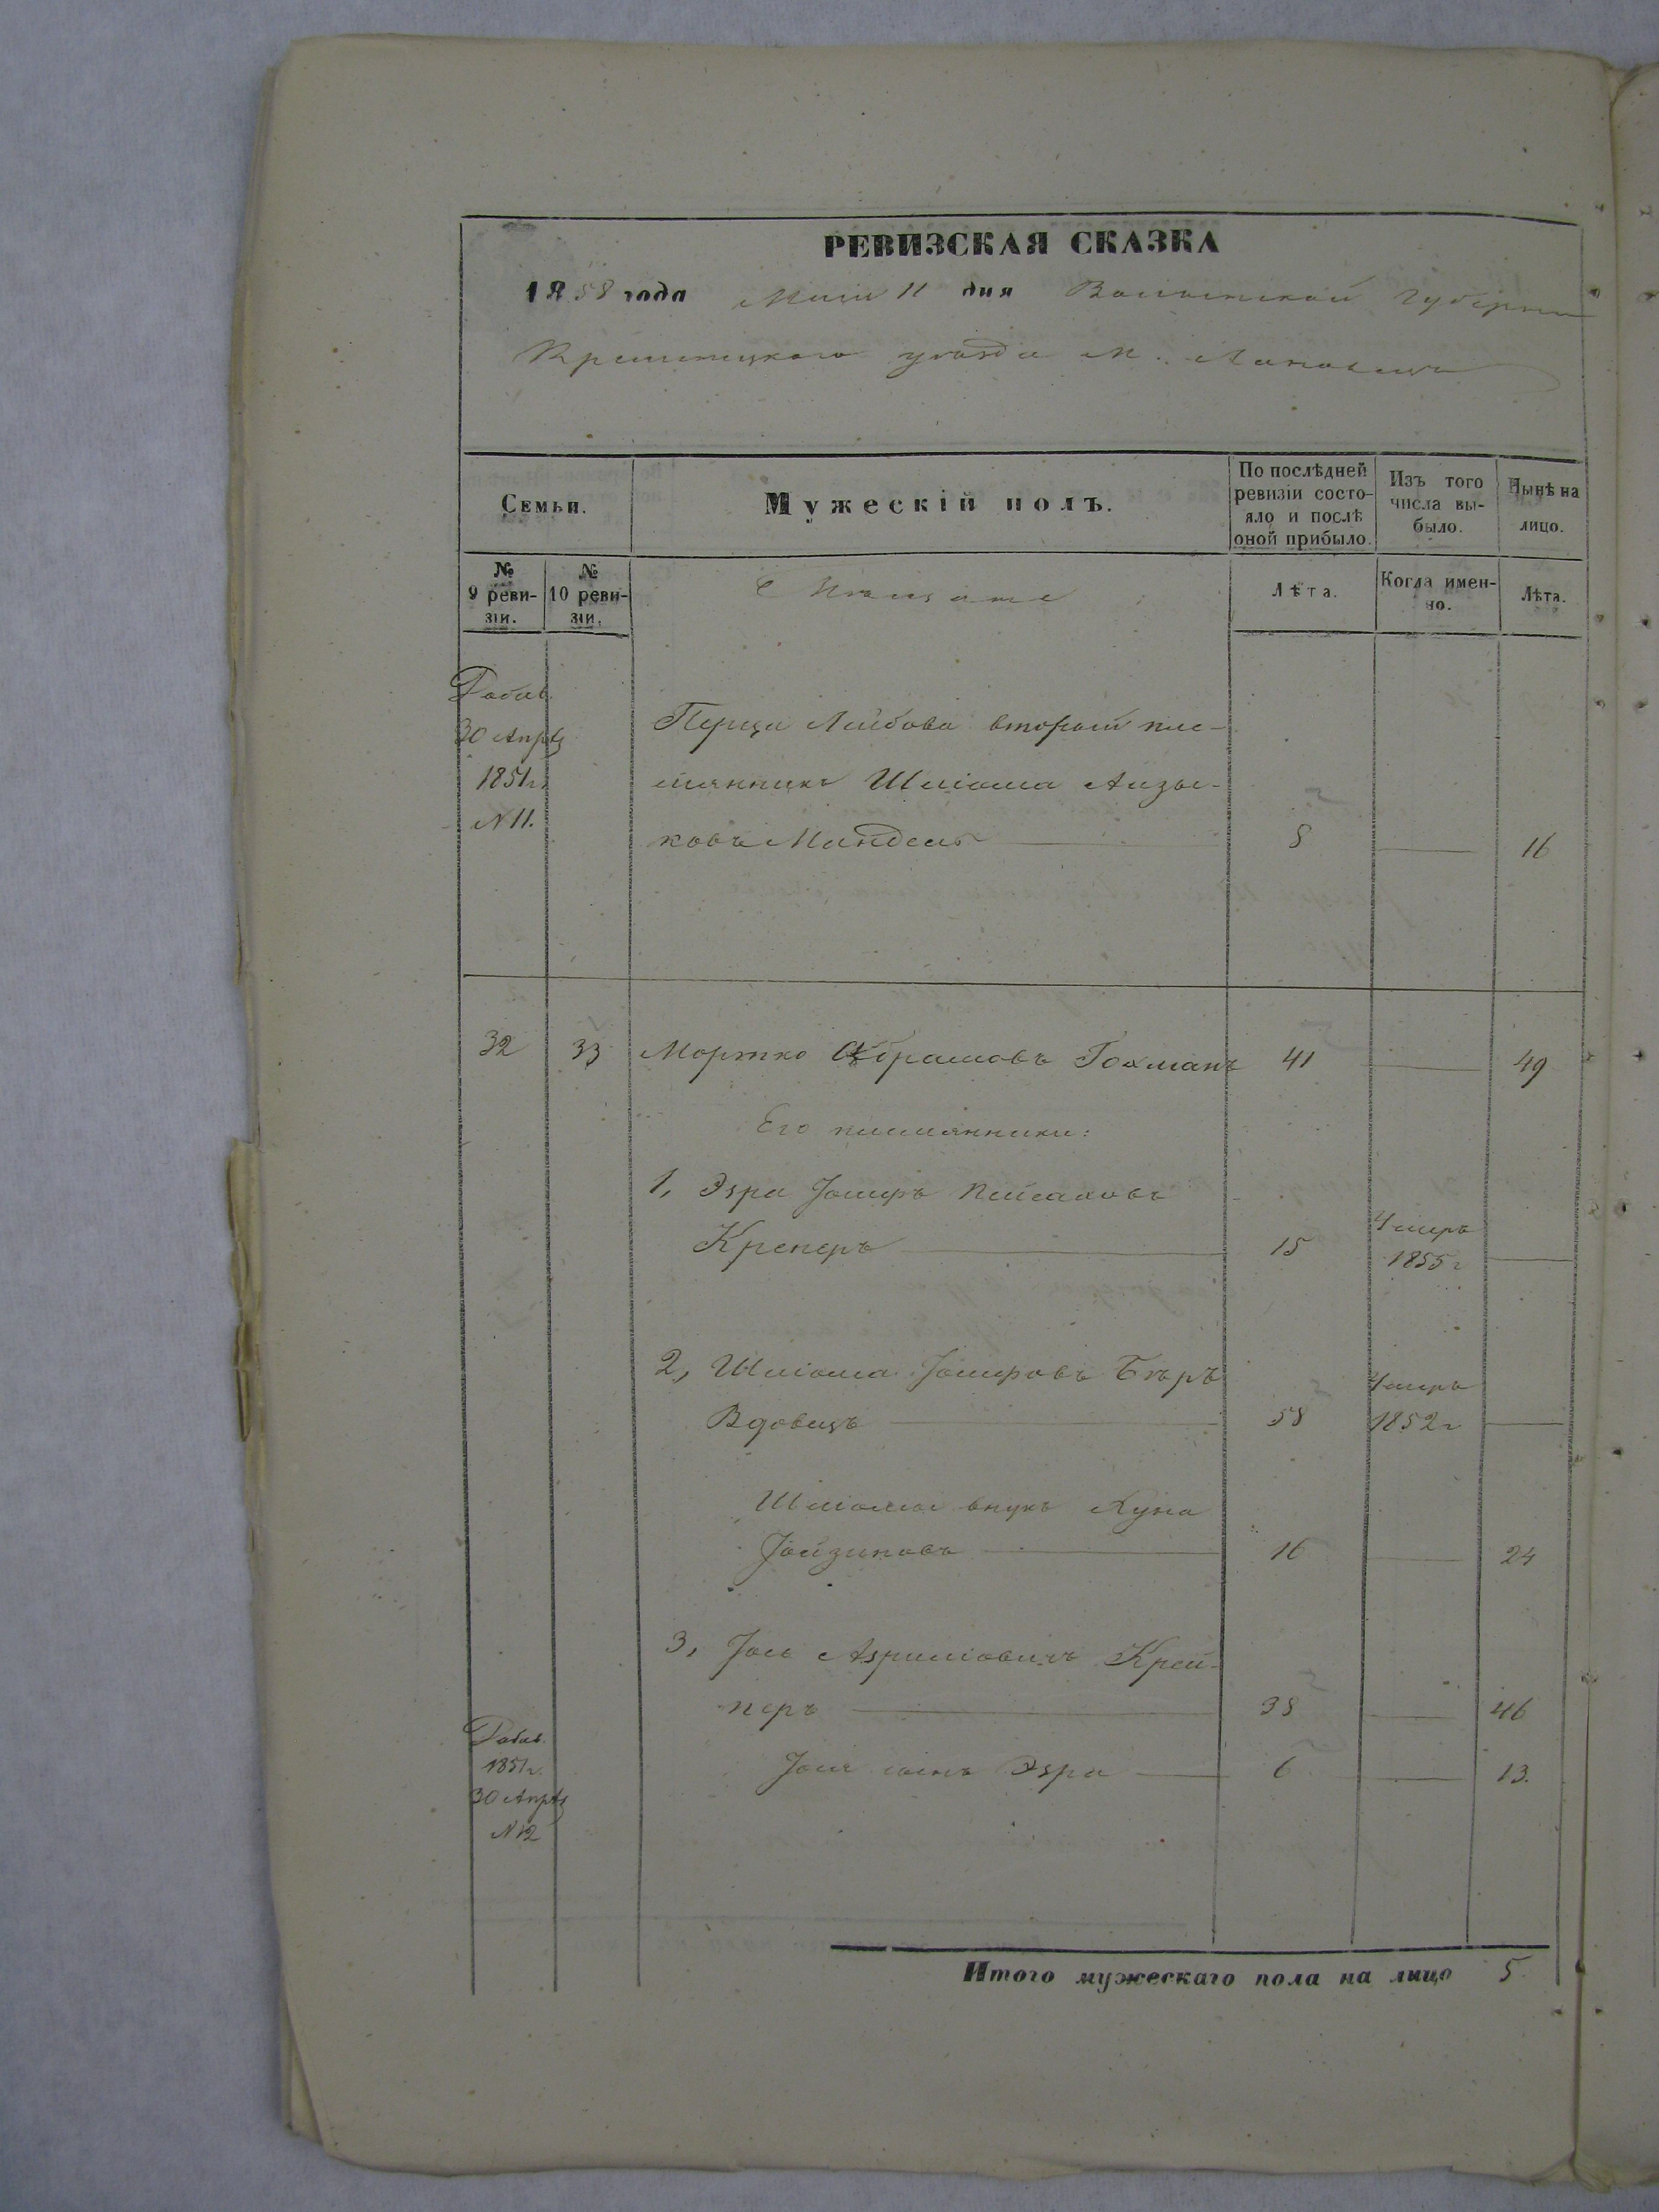 РЕВИЗСКАЯ СКАЗКА
1858 года Маія 11 дня Волынской Губерніи
Кременецкого уезда м. Лановецъ
Семьи.
Мужескій полъ.
По послѣдней ревизіи состо-
яло и послѣ оной прибыло.
Изъ того числа вы-
было.
Нынѣ на лицо.
№ 9 реви-
зіи.
№ 10 реви-
зіи.
Мещане
Лѣта.
Когда имен-
но.
Лѣта.
Добав.
30 Апрѣ
1851 г.
N 11.
Перца Лейбова вторый пле-
мянникъ Шліома Айзы-
ковъ Мандель 8 16
32 33 Мортко Абрамовъ Гохманъ 41 49
Его племянники:
1, Эзра Іосифъ Пейсаховъ
Креперъ 15 Умеръ 1855 г
2, Шліома Іосифовъ Бѣръ
Вдовецъ 58 Умеръ 1852 г
Шліомы внукъ Нуна
16 24
3, Іось Азриліовичъ Крей-
перъ 38 46
Добав.
1851 г.
30 Апрѣ
N 12
Іося сынъ Эзра 6 13.
Итого мужескаго пола на лицо 5